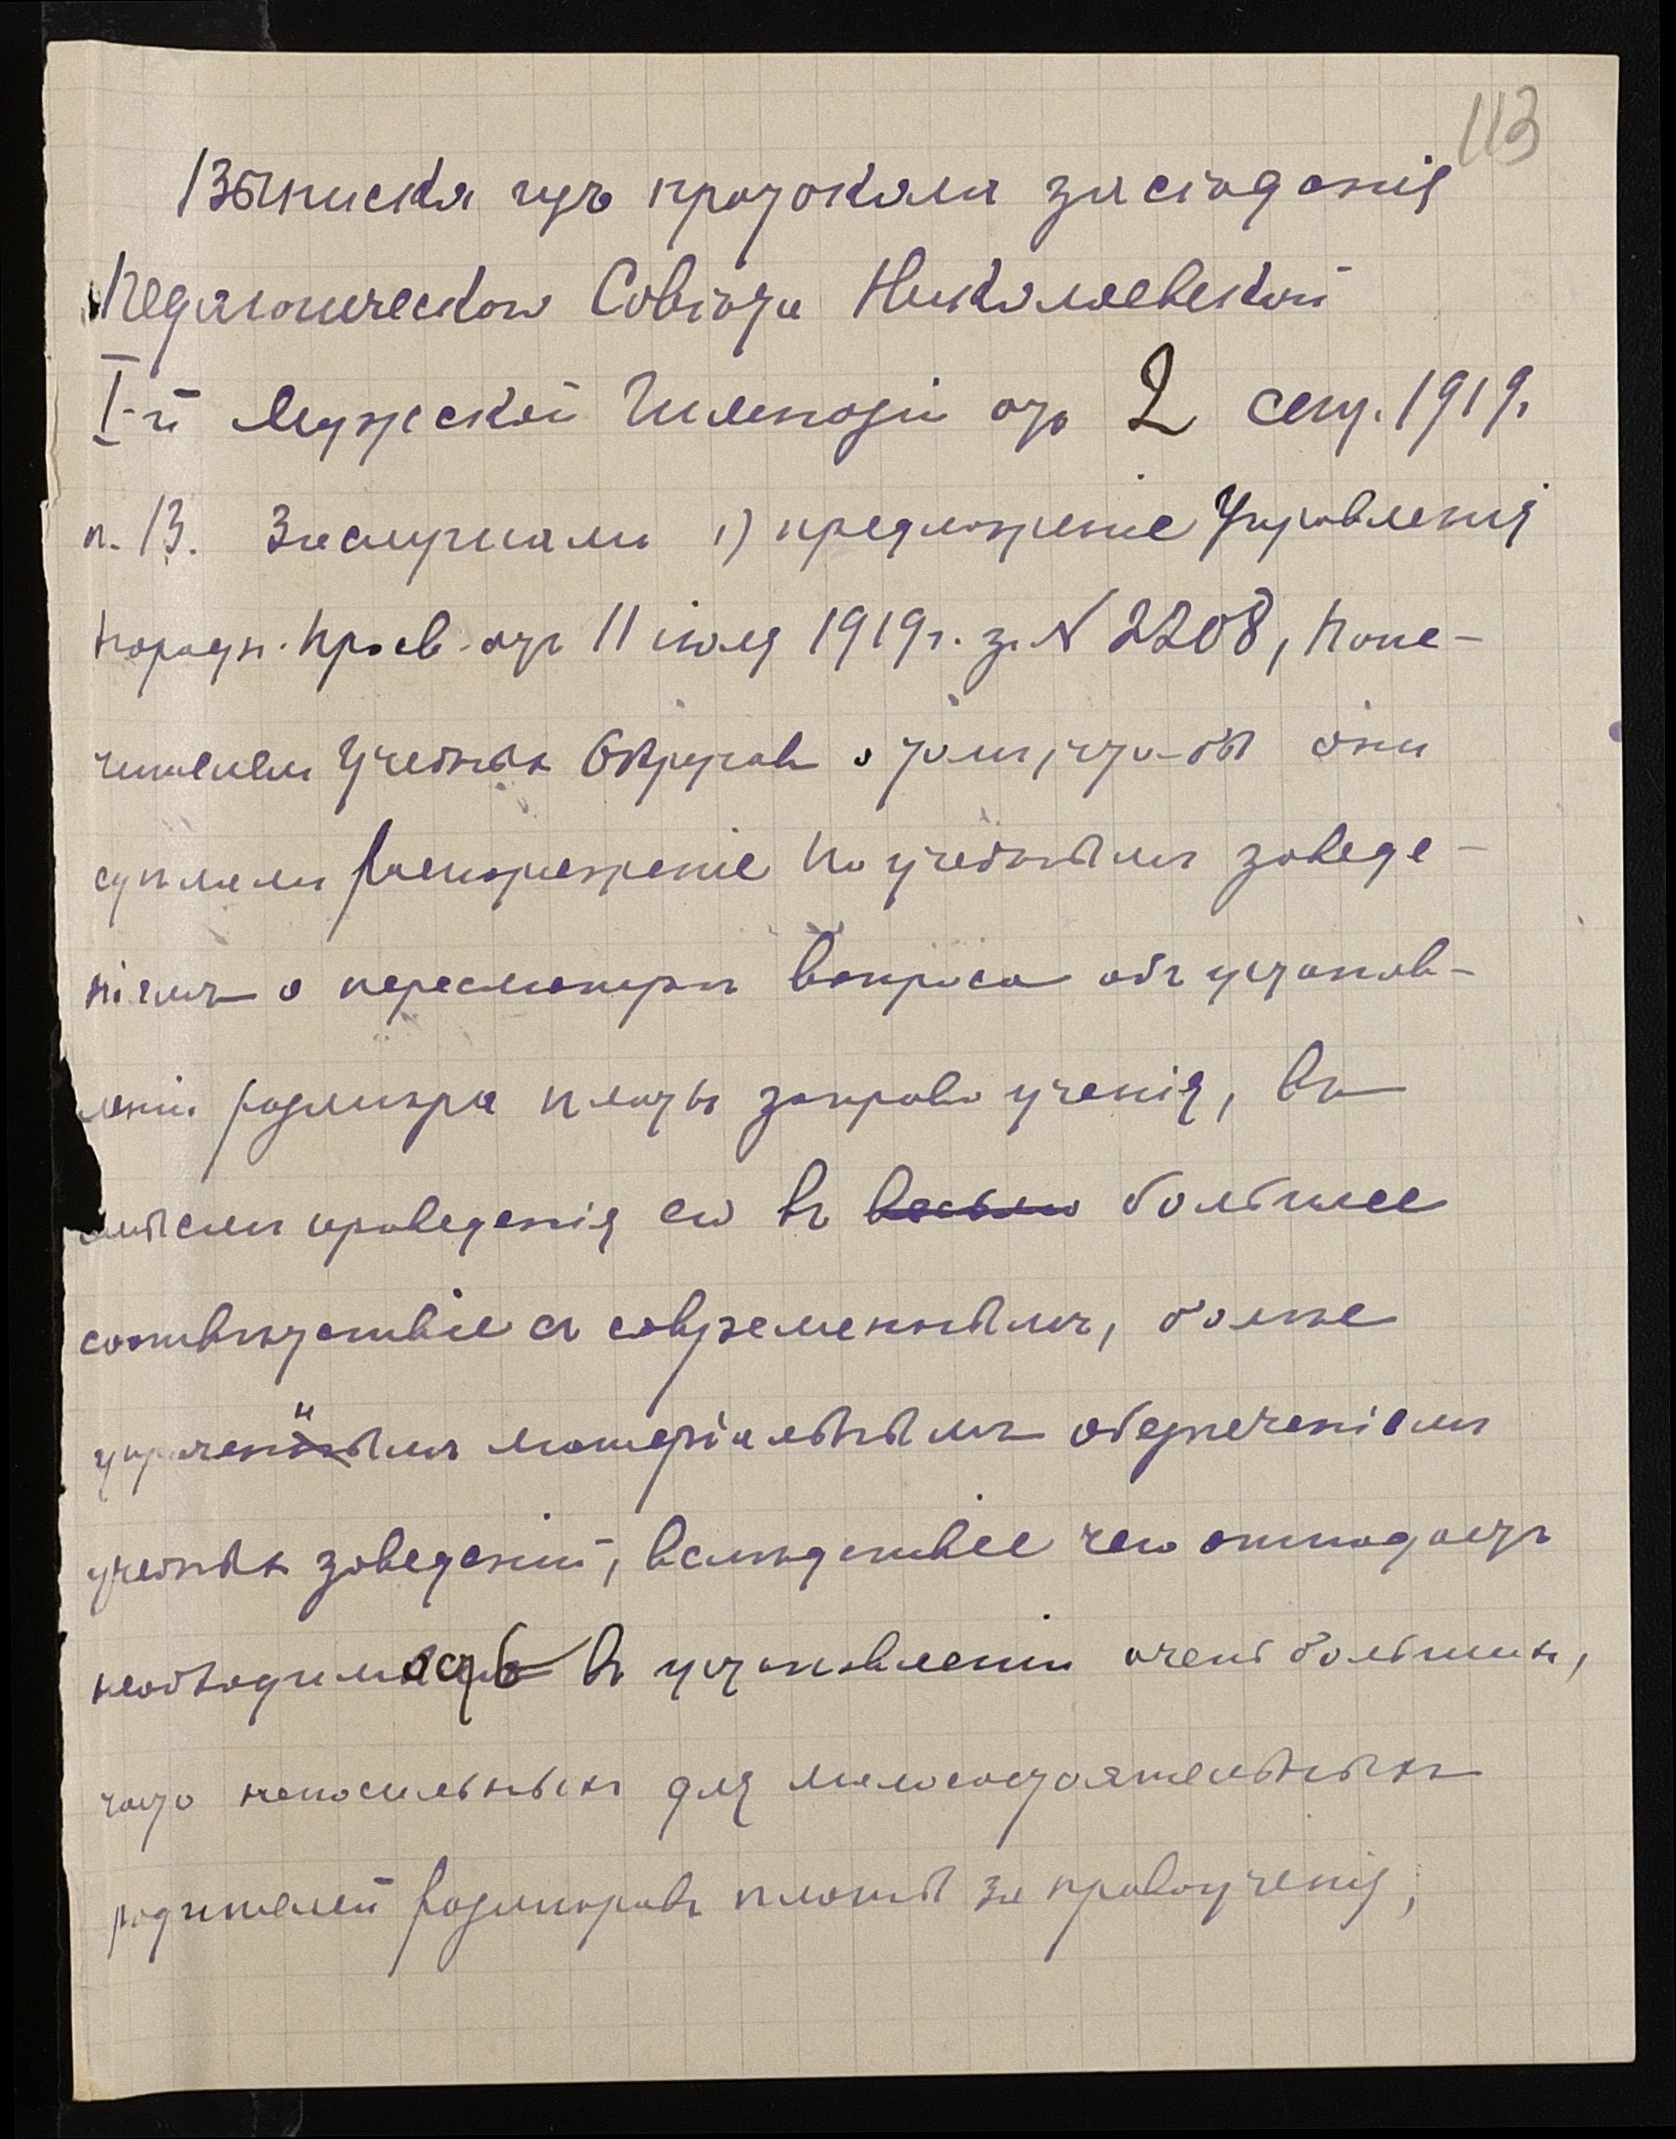 113
Выписка изъ протокола засѣданія
Педагогическаго Совѣта Николаевской
I-й Мужской Гимназіи отъ 2 сент. 1919г.
п. 13. Заслушали 1) предложеніе Управленія
Народн. Просв. отъ 11 іюля 1919г. за № 2208, Попе-
чителямъ Учебныхъ Округовъ о томъ, что-бы они
сдѣлали распоряженіе по учебнымъ заведе-
ніямъ о пересмотрѣ вопроса объ установ-
леніи размѣра платы за право ученія, въ
смыслѣ приведенія его въ весьма большее
соотвѣтствіе съ современнымъ, болѣе
упроченнымъ матеріальнымъ обезпеченіемъ
учебныхъ заведеній, вслѣдствіе чего отпадаетъ
необходимость въ установленіи очень большихъ,
часто непосильныхъ для малосостоятельныхъ
родителей размѣровъ платы за правоученія,